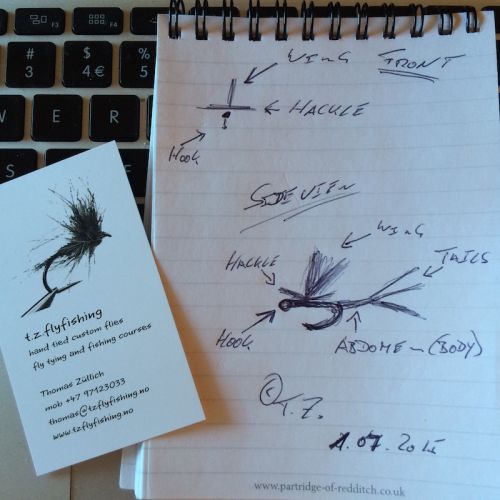 F3
F4
#
3
$
4 €
%
5
W
E
R
S
t.z.flyfishing
hand tied custom flies
fly tying and fishing courses
Thomas Züllich
mob +47 97123033
thomas@tzflyfishing.no
www.tzflyfishing.no
WING FRONT
HACKLE
HOOK
SIDEVIEW
WING
HACKLE
TAILS
HOOK
ABDOMEN (BODY)
© T.Z.
1.07.
www.partridge-of-redditch.co.uk